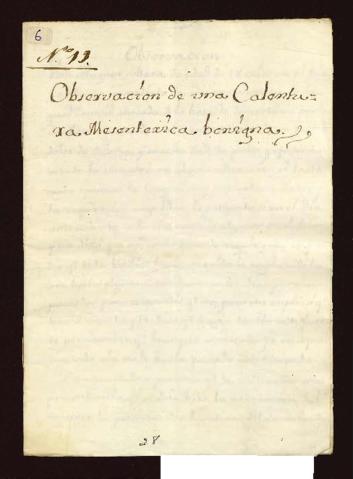 6
N.º 13.
Observacion de una Calentu=
ra Mesenterica benigna.
28